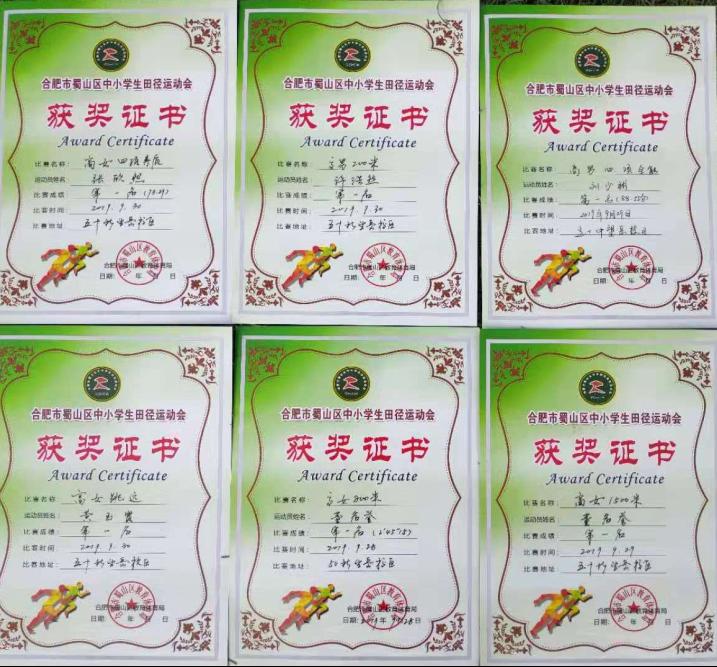 合肥市蜀山区中小学生田径运动会
获奖证书
Award Certificate
比赛名称：高女四项全能
运动员姓名：张欣然
比赛成绩：第一名
比赛时间：2019.9.30
比赛地址：五十
合肥市蜀山区教育体育局
日期： 年 月 日
合肥市蜀山区中小学生田径运动会
获奖证书
Award Certificate
比赛名称：高男200米
运动员姓名：许浩然
比赛成绩：第一名
比赛时间：2019.9.30
比赛地址：五十
合肥市蜀山区教育体育局
日期： 年 月 日
合肥市蜀山区中小学生田径运动会
获奖证书
Award Certificate
比赛名称：高男四项全能
运动员姓名：刘少
比赛成绩：第一名
比赛时间：2019年9月29日
比赛地址：五十中望岳校区
合肥市蜀山区教育体育局
日期： 年 月 日
合肥市蜀山区中小学生田径运动会
获奖证书
Award Certificate
比赛名称：高女跳远
运动员姓名：黄玉
比赛成绩：第一名
比赛时间：2019.9.30
比赛地址：五十
合肥市蜀山区教育体育局
日期： 年 月 日
合肥市蜀山区中小学生田径运动会
获奖证书
Award Certificate
比赛名称：高女800米
运动员姓名：董
比赛成绩：第一名
比赛时间：2019.9.28
比赛地址：50
合肥市蜀山区教育体育局
日期：2019年9月28日
合肥市蜀山区中小学生田径运动会
获奖证书
Award Certificate
比赛名称：高女1500米
运动员姓名：董
比赛成绩：第一名
比赛时间：2019.9.29
比赛地址：五十
合肥市蜀山区教育体育局
日期： 年 月 日